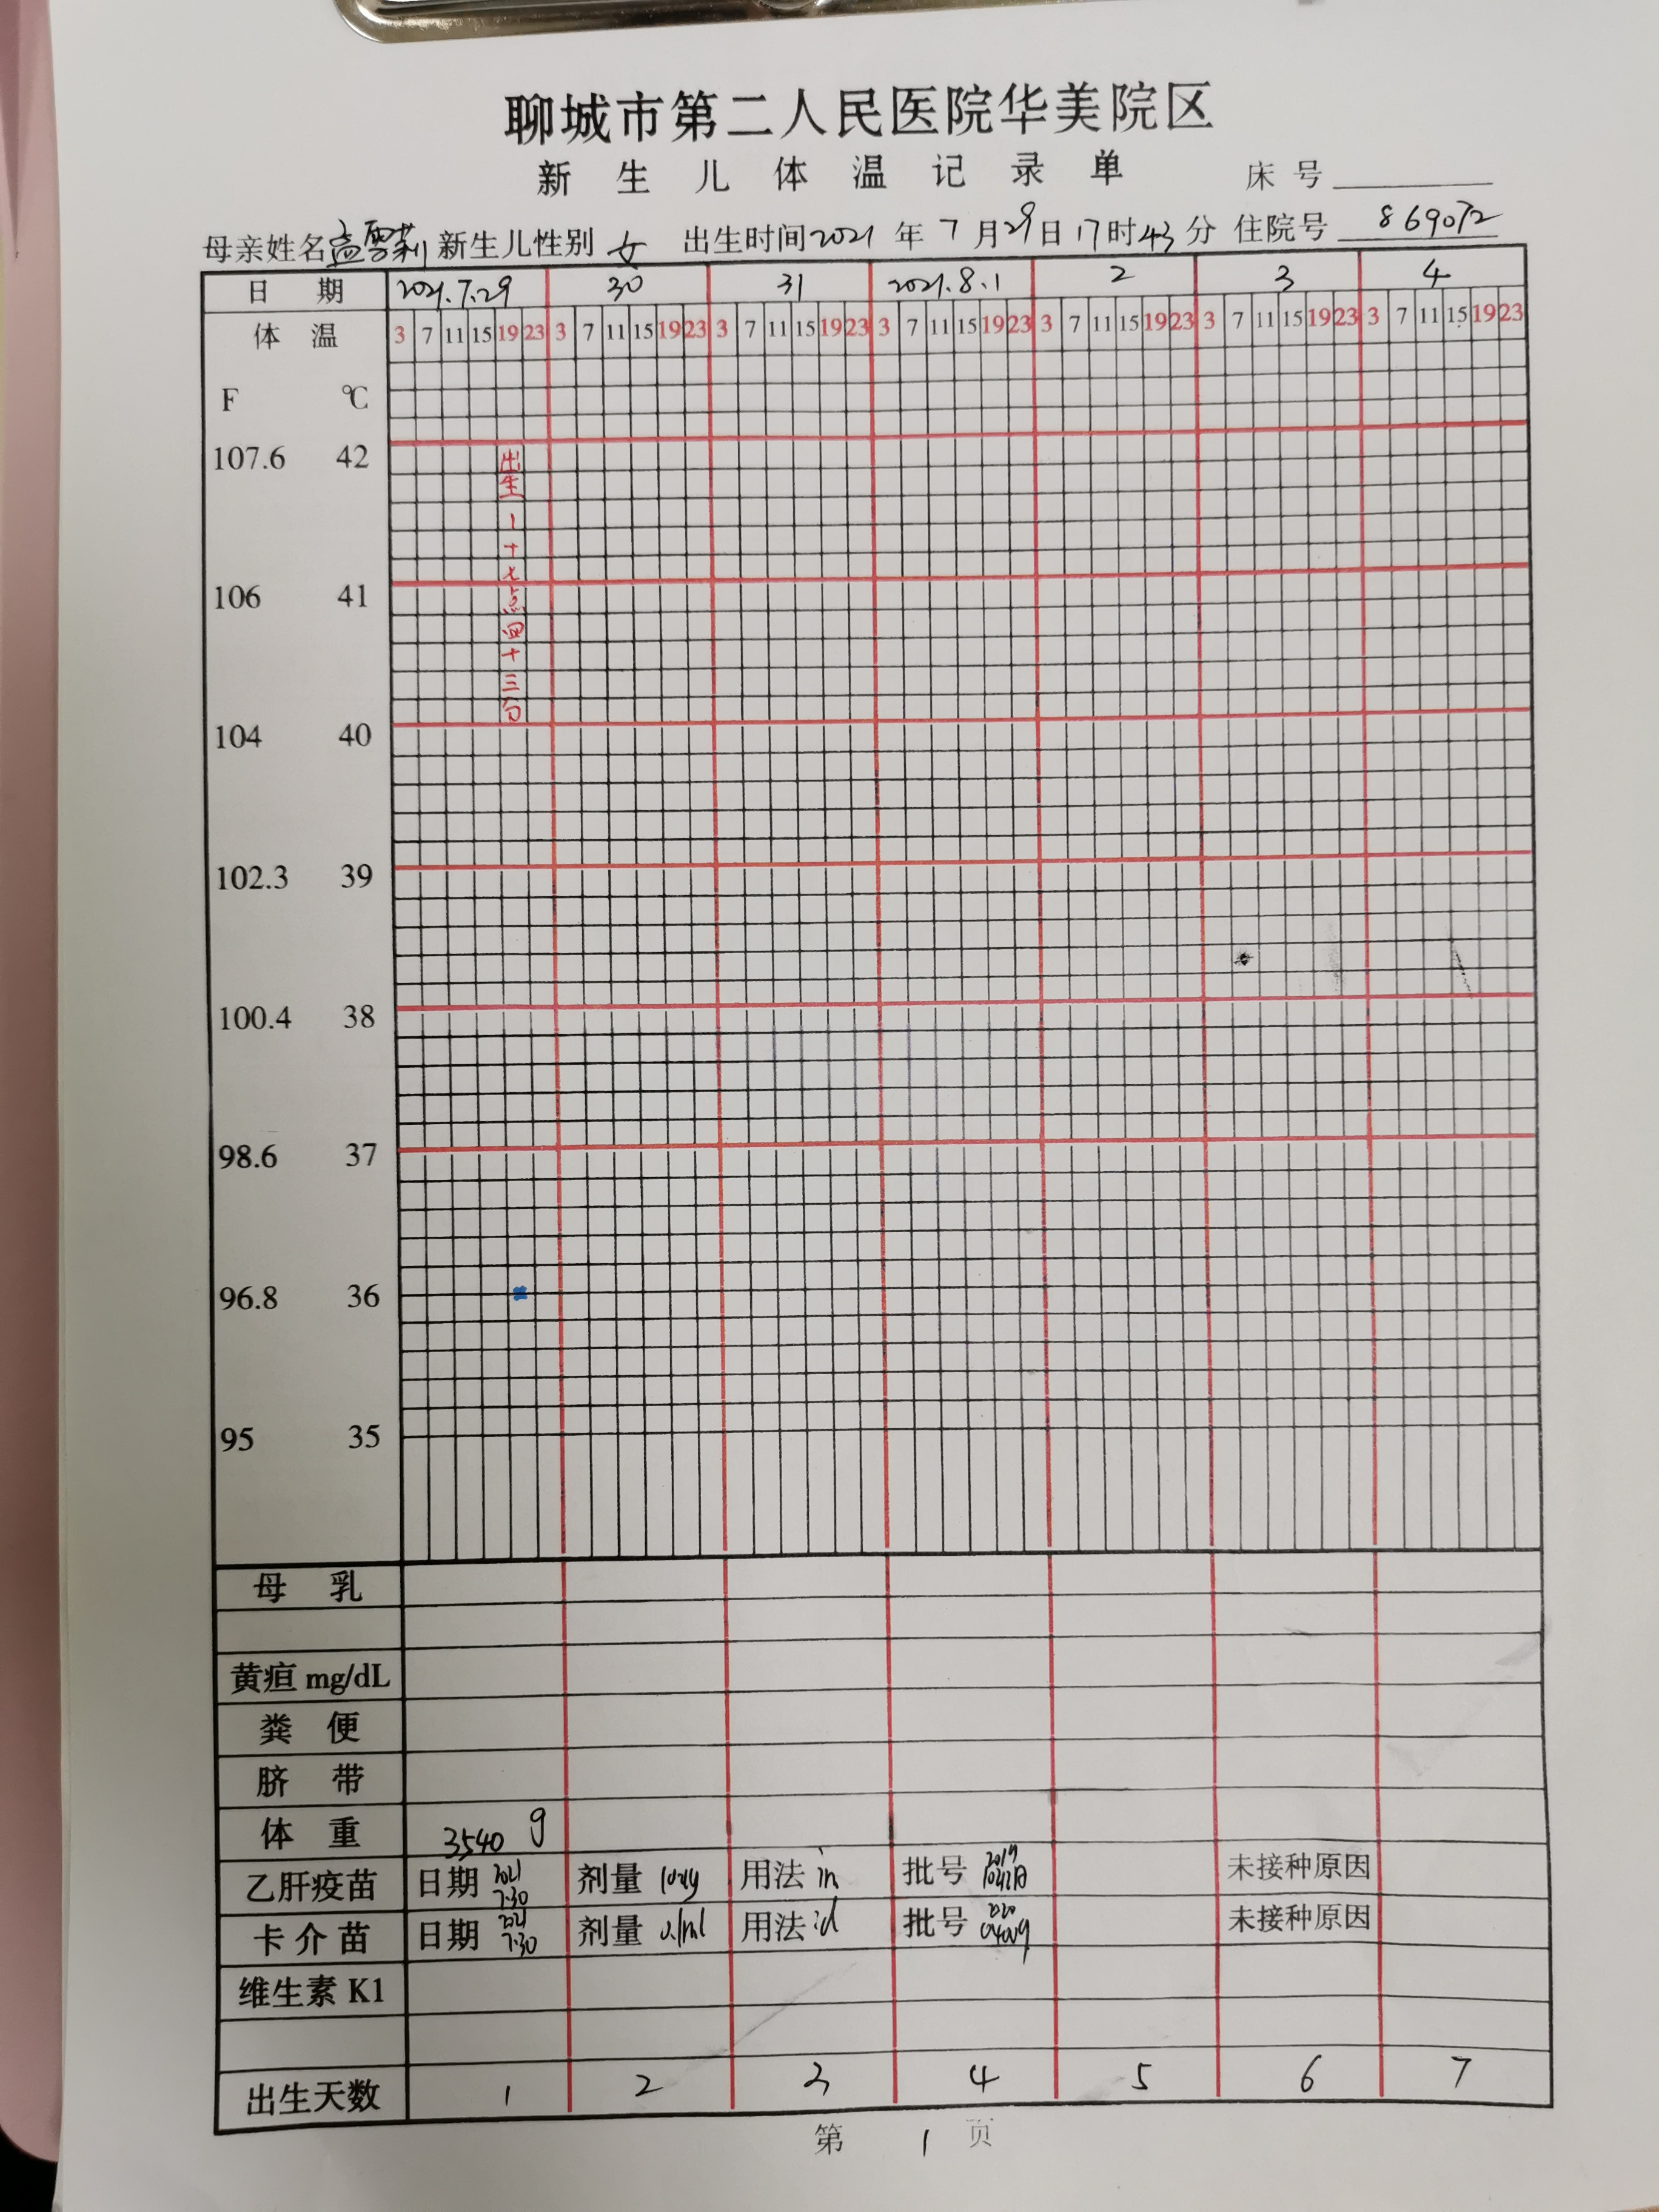 聊城市第二人民医院华美院区
新生儿体温记录单 床号
母亲姓名孟雪莉 新生儿性别 女 出生时间2021年7月29日17时43分 住院号 869072
日期 2021.7.29 30 31 2021.8.1 2 3 4
体温 3 7 11 15 19 23 3 7 11 15 19 23 3 7 11 15 19 23 3 7 11 15 19 23 3 7 11 15 19 23 3 7 11 15 19 23 3 7 11 15 19 23
F ℃
107.6 42
出生|十七点四十三分
106 41
104 40
102.3 39
100.4 38
98.6 37
96.8 36
95 35
母乳
黄疸 mg/dL
粪便
脐带
体重 3540 g
乙肝疫苗 日期 2021 7.30 剂量 10ug 用法 im 批号 2019 未接种原因
卡介苗 日期 2021 7.30 剂量 0.1ml 用法 id 批号 2020 未接种原因
维生素 K1
出生天数 1 2 3 4 5 6 7
第 1 页